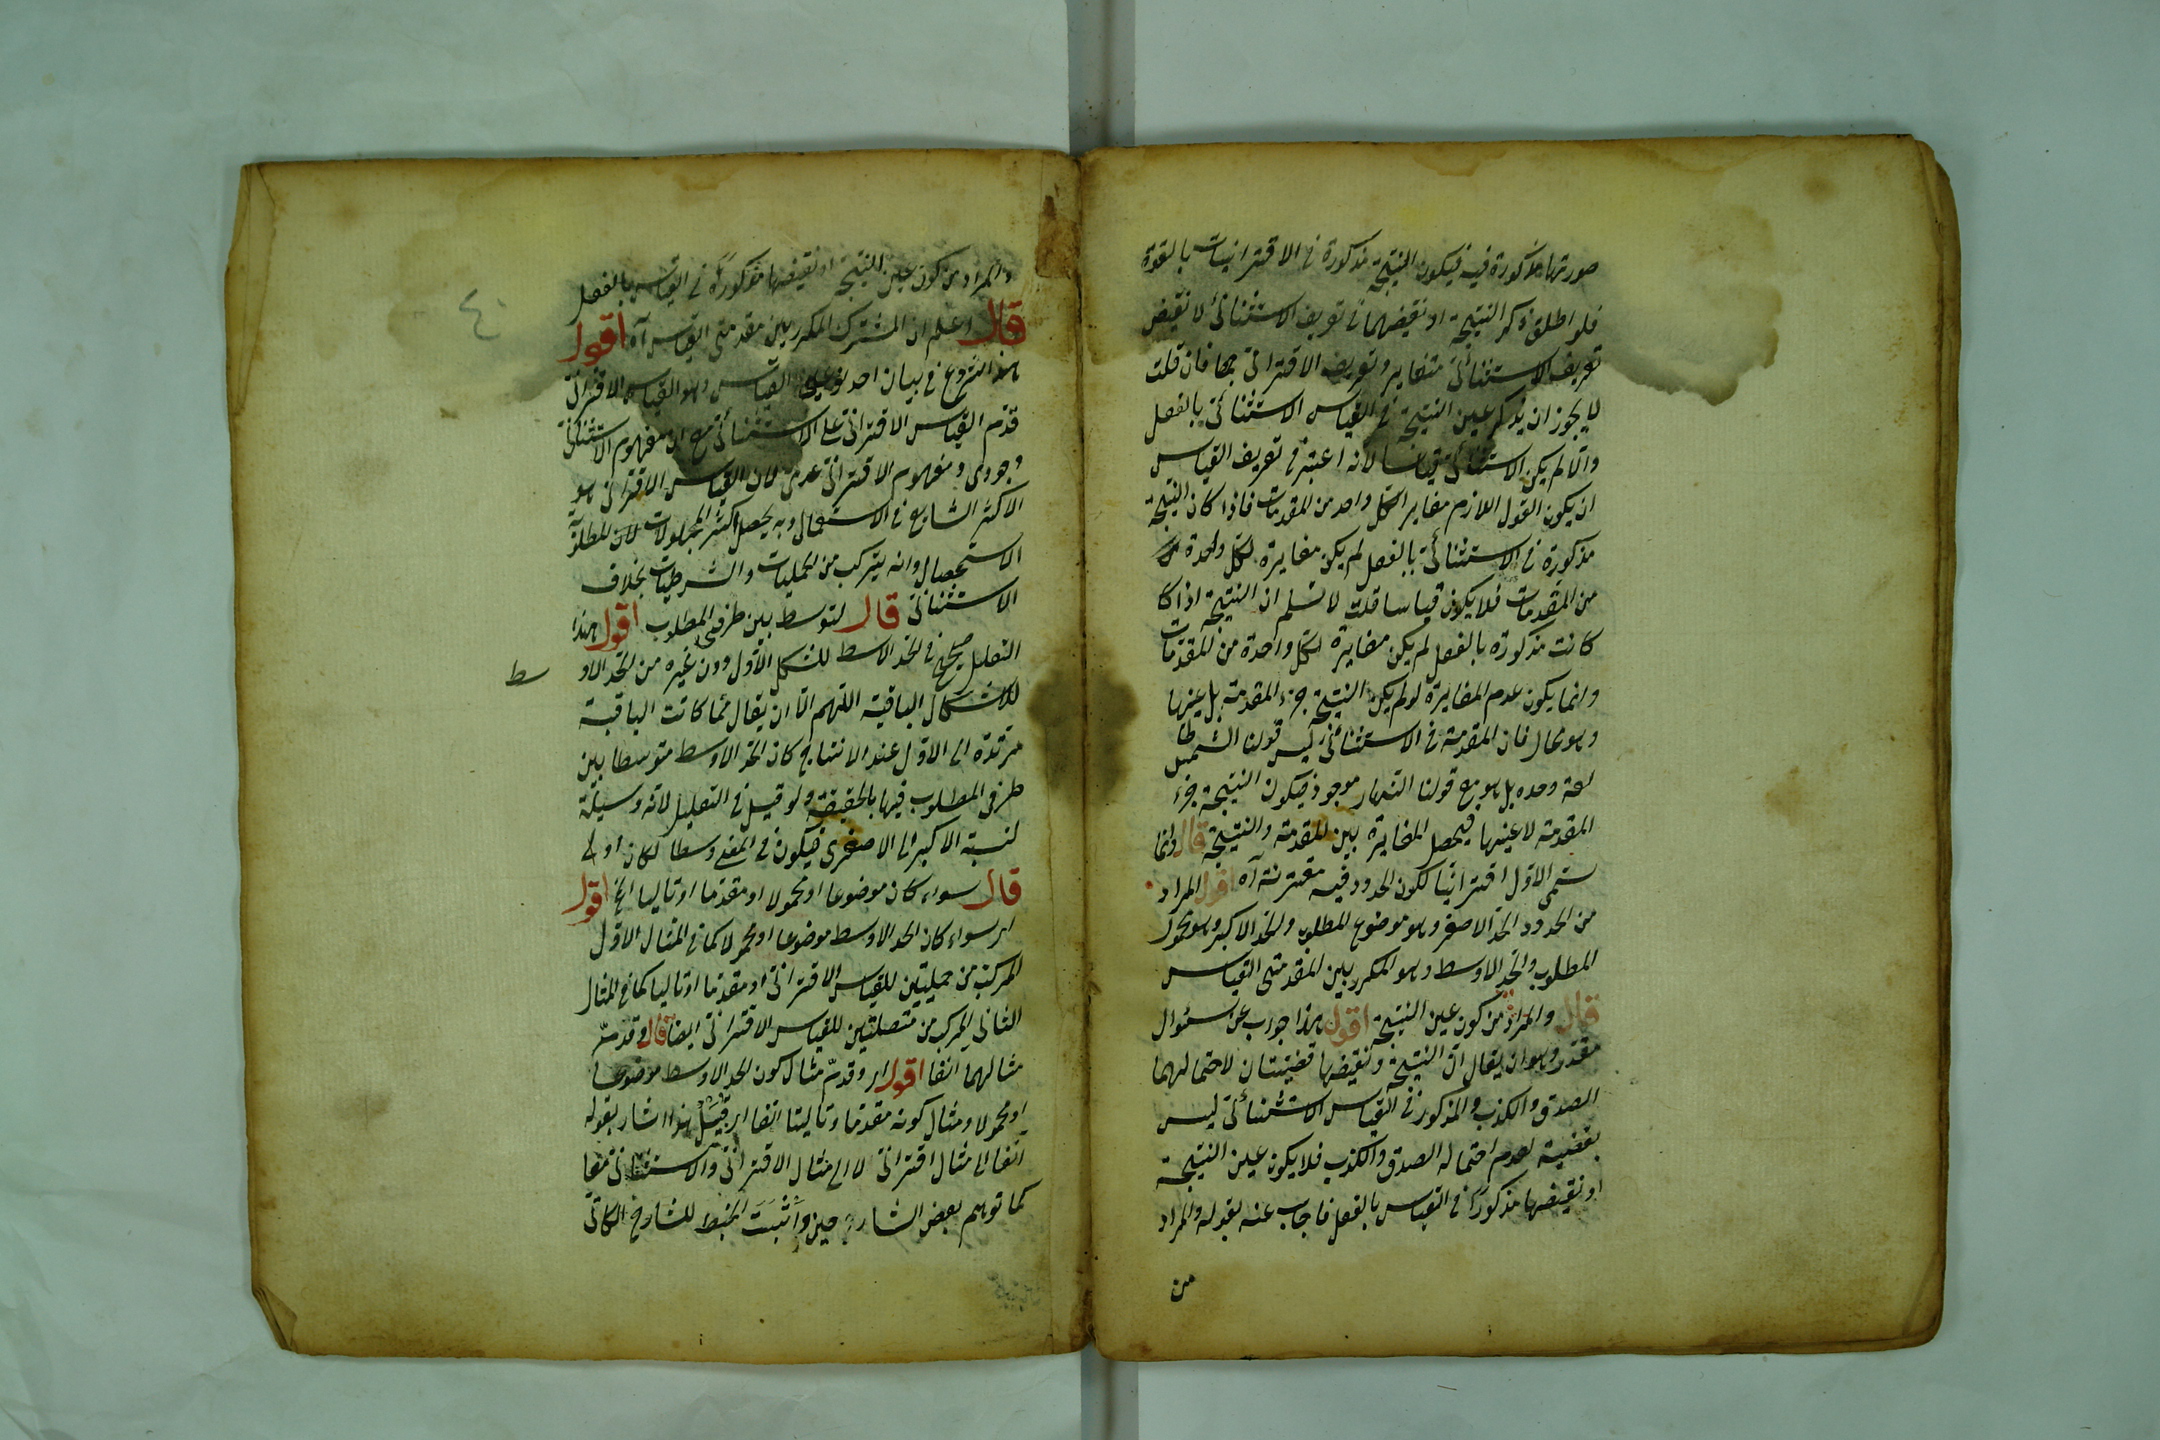 صورتها مذكورة فيه فيكون النتيجة مذكورة في الاقترانيات بالقوة
فلو اطلق ذكر النتيجة او نقيضهما في تعريف الاستثنائي لا نقيض
تعريف الاستثنائي متغاير وتعريف الاقتراني جمعا فان قلت
لا يجوز ان يذكر عين النتيجة في القياس الاستثنائي بالفعل
والا لم يكن الاستثنائي قياسا لانه اعتبر في تعريف القياس
ان يكون القول اللازم مغايرا لكل واحد من المقدمات فاذا كان النتيجة
مذكورة في الاستثنائي بالفعل لم يكن مغايرة لكل واحدة
من المقدمات فلا يكون قياسا قلت لا نسلم ان النتيجة اذا كا
كانت مذكورة بالفعل لم يكن مغايرة لكل واحدة من المقدمات
وانما يكون عدم المغايرة لو لم يكن النتيجة جزء المقدمة بل عينها
وهو محال فان المقدمة في الاستثنائي ليس قولنا الشمس طا
لعة وحده بل هو مع قولنا النهار موجود فيكون النتيجة جزء
المقدمة لا عينها فيحصل المغايرة بين المقدمة والنتيجة قال وانما
سمي الاول اقترانيا لكون الحدود فيه مقترنة آه اقول المراد
من الحدود الحد الاصغر وهو موضوع المطلوب والحد الاكبر وهو محمول
المطلوب والحد الاوسط وهو المكرر بين المقدمتي القياس
قال والمراد من كون عين النتيجة اقول هذا جواب عن سئوال
مقدر وهو ان يقال ان النتيجة ونقيضها قضيتان لاحتمالهما
الصدق والكذب والمذكور في القياس الاستثنائي ليس
بقضية لعدم احتماله الصدق والكذب فلا يكون عين النتيجة
او نقيضها مذكورا في القياس بالفعل فاجاب عنه بقوله والمراد
من
٤٠
والمراد من كون عين النتيجة او نقيضها مذكورة في القياس بالفعل
قال اعلم ان المشترك المكرر بين مقدمتي القياس آه اقول
هذا شروع في بيان احد نوعي القياس وهو القياس الاقتراني
قدم القياس الاقتراني على الاستثنائي مع ان مفهوم الاستثنائي
وجودي ومفهوم الاقتراني عدمي لان القياس الاقتراني هو
الاكثر الشايع في الاستعمال وبه يحصل اكثر المجهولات لان المطلوب
الاستحصال وانه يتركب من الحمليات والشرطيات بخلاف
الاستثنائي قال لتوسط بين طرفي المطلوب اقول هذا
التعليل صحيح في الحد الاوسط للشكل الاول دون غيره من الحد الاو
سط
للاشكال الباقية اللهم الا ان يقال لما كانت الباقية
مرتدة الى الاول عند الانتاج كان الحد الاوسط متوسطا بين
طرفي المطلوب فيها بالحقيقة ولو قيل في التعليل لانه وسيلة
لنسبة الاكبر الى الاصغر فيكون في المعنى وسطا لكان اولى
قال سواء كان موضوعا او محمولا او مقدما او تاليا الخ اقول
اي سواء كان الحد الاوسط موضوعا او محمولا كما في المثال الاول
المركب من حمليتين للقياس الاقتراني او مقدما او تاليا كما في المثال
الثاني المركب من متصلتين للقياس الاقتراني ايضا قال وقد مر
مثالهما آنفا اقول اي وقد مر مثال كون الحد الاوسط موضوعا
او محمولا ومثال كونه مقدما وتاليا آنفا اي قبيل هذا اشار بقوله
آنفا الى مثال اقتراني لا الى مثال الاقتراني والاستثنائي معا
كما توهم بعض الشارحين واثبت الخبط للشارح الكاتي